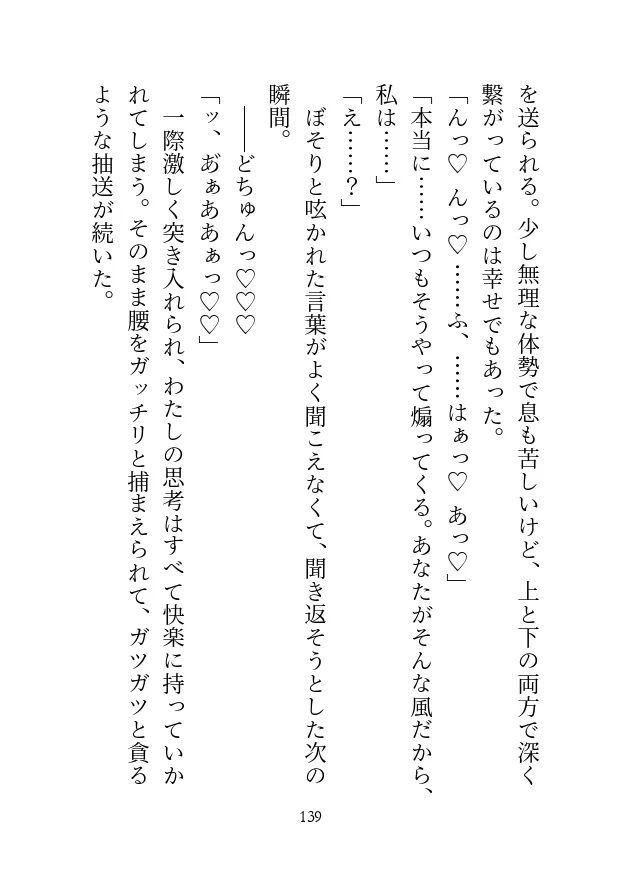 を送られる。少し無理な体勢で息も苦しいけど、上と下の両方で深く
繋がっているのは幸せでもあった。
「んっ♡ んっ♡ ……ふ、……はぁっ♡ あっ♡」
「本当に……いつもそうやって煽ってくる。あなたがそんな風だから、
私は……」
「え……？」
ぼそりと呟かれた言葉がよく聞こえなくて、聞き返そうとした次の
瞬間。
――どちゅんっ♡♡♡
「ッ、あ゙ぁああぁっ♡♡」
一際激しく突き入れられ、わたしの思考はすべて快楽に持っていか
れてしまう。そのまま腰をガッチリと捕まえられて、ガツガツと貪る
ような抽送が続いた。
139